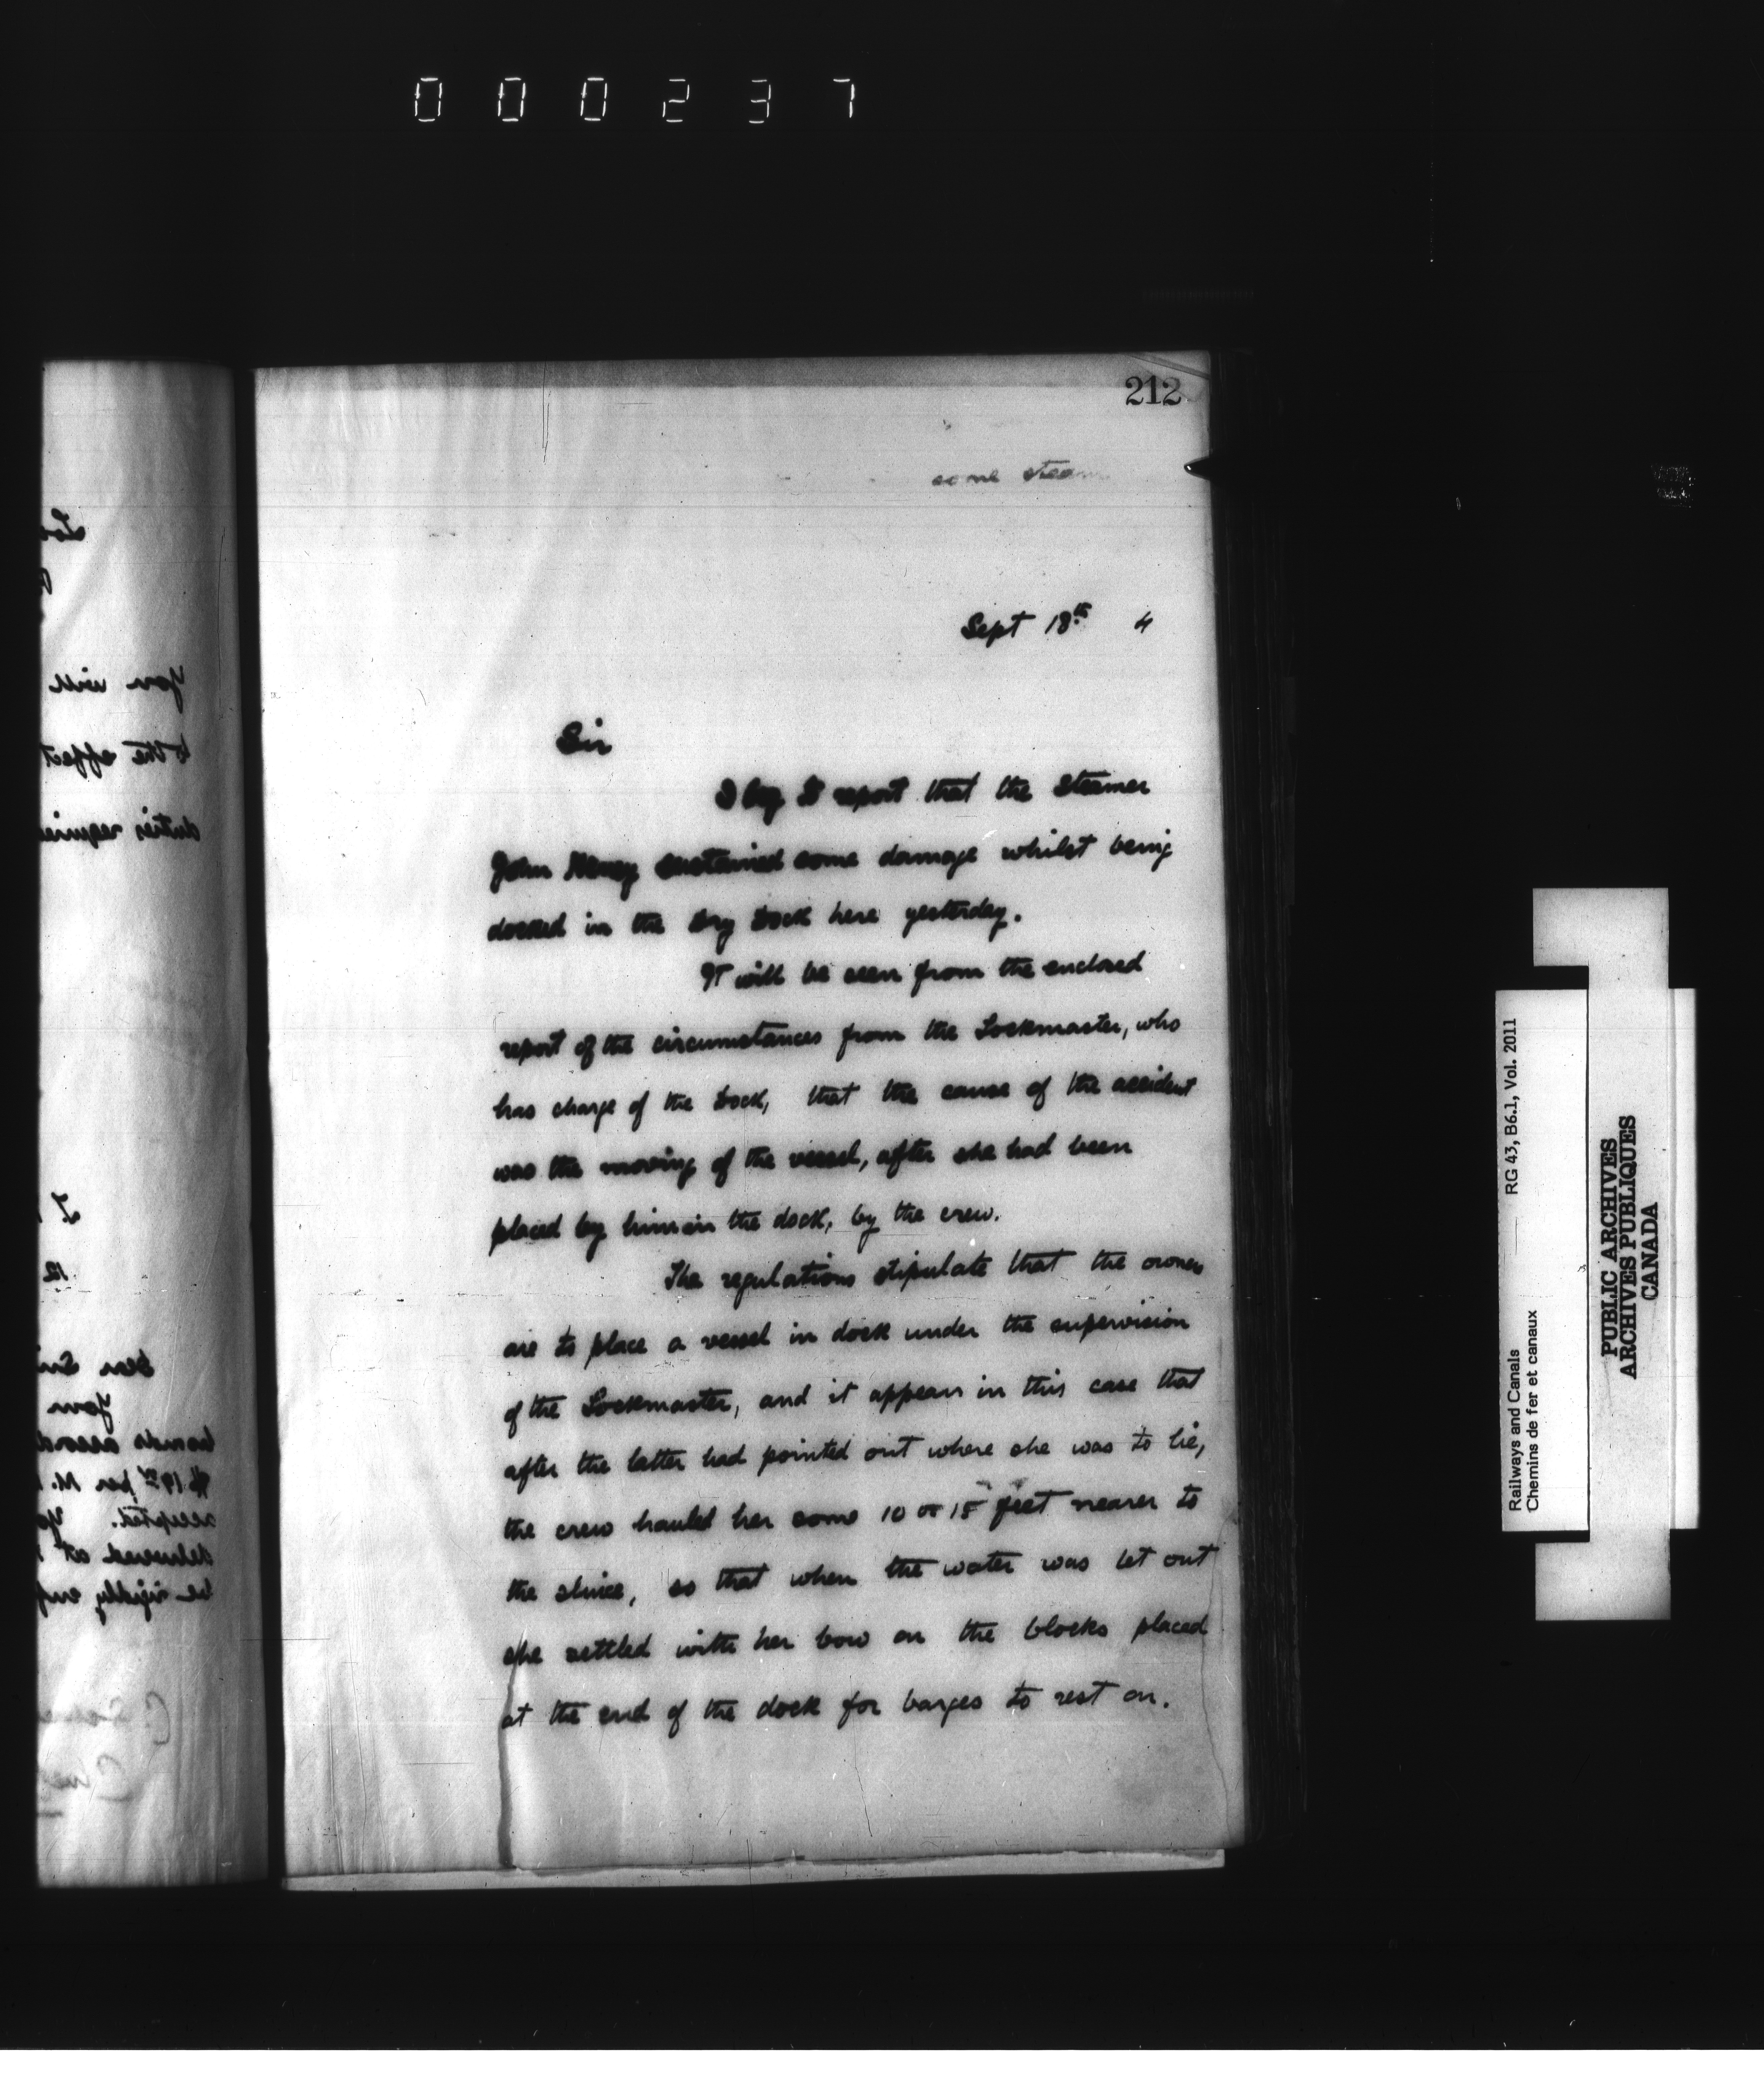 000237
212
some steam
Sept 18th 4
Sir
I beg to report that the steamer
John Haney sustained some damage whilst being
docked in the Dry Dock here yesterday.
It will be seen from the enclosed
report of the circumstances from the Lockmaster, who
has charge of the Dock, that the cause of the accident
was the moving of the vessel, after she had been
placed by him in the dock, by the crew.
The regulations stipulate that the owners
are to place a vessel in dock under the supervision
of the Lockmaster, and it appears in this case that
after the latter had pointed out where she was to lie,
the crew hauled her some 10 or 15 feet nearer to
the sluice, so that when the water was let out
she settled with her bow on the blocks placed
at the end of the dock for barges to rest on.
You will
to the effect
duties require
12
Dear Sir
Your
bonds accord
per M.
accepted. Yo
delivered at
be rigidly enf
Railways and Canals RG 43, B6.1, Vol. 2011
Chemins de fer et canaux
PUBLIC ARCHIVES
ARCHIVES PUBLIQUES
CANADA